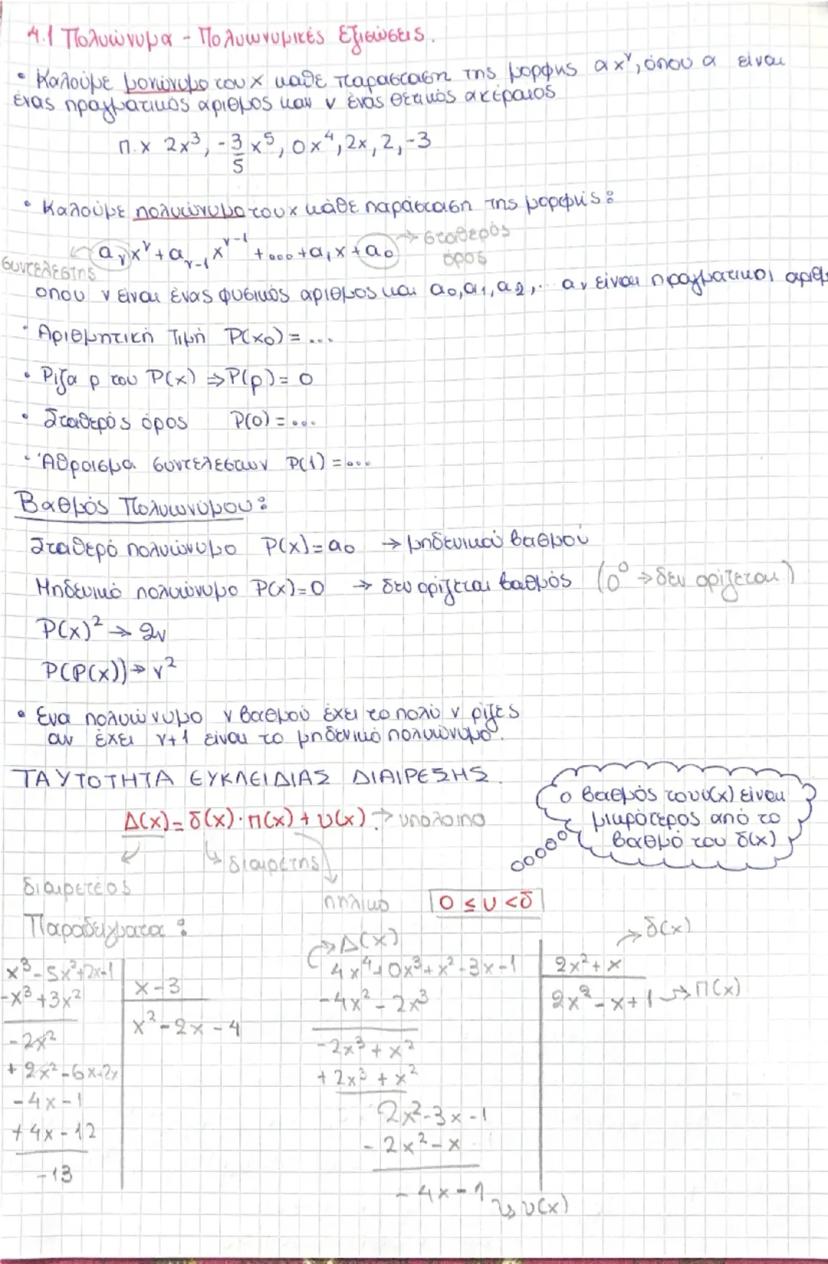 4.1 Πολυώνυμα - Πολυωνυμικές Εξισώσεις.
• Καλούμε μονώνυμο του x κάθε παράσταση της μορφής αx^ν, όπου α είναι
ένας πραγματικός αριθμός και ν ένας θετικός ακέραιος
π.χ 2x³, -3/5 x⁵, 0x⁴, 2x, 2, -3
• Καλούμε πολυώνυμο του x κάθε παράσταση της μορφής:
α_ν x^ν + α_{ν-1} x^{ν-1} + ... + α₁x + α₀ → σταθερός όρος
συντελεστης
οπου ν είναι ένας φυσικός αριθμός και α₀, α₁, α₂, .. αν είναι πραγματικοι αριθ
• Αριθμητική Τιμή P(x₀) = ...
• Ρίζα ρ του P(x) ⇒ P(ρ) = 0
• Σταθερός όρος P(0) = ...
• Άθροισμα συντελεστων P(1) = ...
Βαθμός Πολυωνύμου:
Σταθερό πολυώνυμο P(x) = α₀ → μηδενικού βαθμού
Μηδενικό πολυώνυμο P(x) = 0 → δεν ορίζεται βαθμός (0⁰ → δεν ορίζεται)
P(x)² → 2ν
P(P(x)) → ν²
• Ενα πολυώνυμο ν βαθμού έχει το πολύ ν ρίζες
αν έχει ν+1 είναι το μηδενικό πολυώνυμο.
ΤΑΥΤΟΤΗΤΑ ΕΥΚΛΕΙΔΙΑΣ ΔΙΑΙΡΕΣΗΣ.
Δ(x) = δ(x) · π(x) + υ(x) → υπόλοιπο
ο βαθμός του υ(x) είναι
μικρότερος από το
βαθμό του δ(x)
διαιρετης
διαιρετέος
πηλικο
0 ≤ υ < δ
Παραδείγματα:
x³ - 5x² + 2x - 1
x - 3
-x³ + 3x²
x² - 2x - 4
-2x²
+ 2x² - 6x + 2x
-4x - 1
+ 4x - 12
-13
→ Δ(x)
→ δ(x)
4x⁴ + 0x³ + x² - 3x - 1
2x² + x
-4x² - 2x³
2x² - x + 1 → Π(x)
-2x³ + x²
+ 2x³ + x²
2x² - 3x - 1
- 2x² - x
- 4x - 1
→ υ(x)